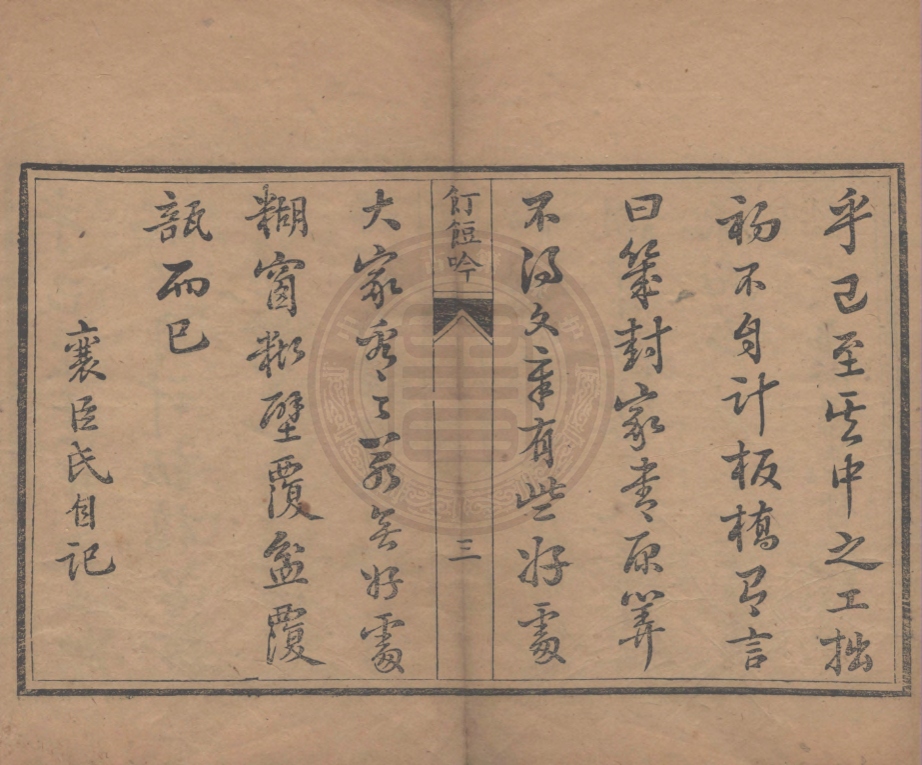 乎已至其中之工拙
初不自計板橋有言
曰幾封家書原算
不得文章有些好處
飣餖吟
三
大家看〻若無好處
糊窗糊壁覆盆覆
瓿而已
襄臣氏自記